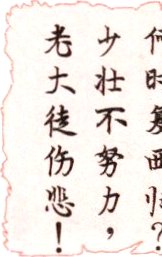 何时复西归?
少壮不努力,
老大徒伤悲!